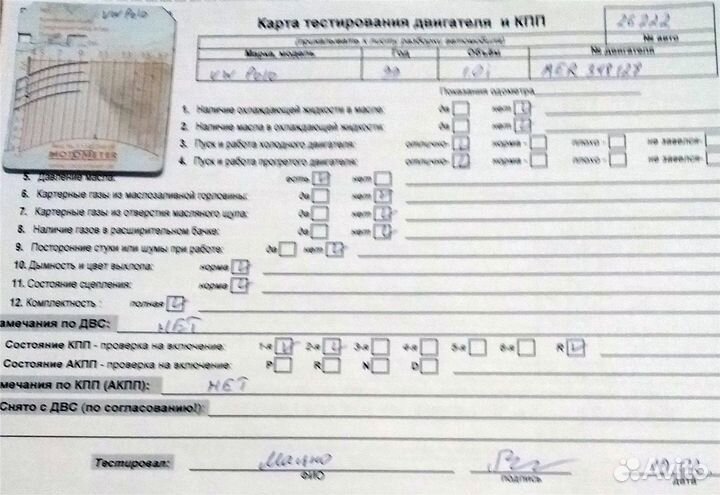 VW Polo
MOTOMETER
Карта тестирования двигателя и КПП
(прикалывать к листу разборку автомобиля)
26222
№ авто
Марка, модель Год Объём № двигателя
VW Polo 99 1.0i AER 348128
Показания одометра
1. Наличие охлаждающей жидкости в масле: да нет
2. Наличие масла в охлаждающей жидкости: да нет
3. Пуск и работа холодного двигателя: отлично- норма- плохо- не завелся-
4. Пуск и работа прогретого двигателя: отлично- норма- плохо- не завелся-
5. Давление масла: есть нет
6. Картерные газы из маслозаливной горловины: да нет
7. Картерные газы из отверстия масляного щупа: да нет
8. Наличие газов в расширительном бачке: да нет
9. Посторонние стуки или шумы при работе: да нет
10. Дымность и цвет выхлопа: норма
11. Состояние сцепления: норма
12. Комплектность : полная
амечания по ДВС: НЕТ
Состояние КПП - проверка на включение: 1-я 2-я 3-я 4-я 5-я 6-я R
Состояние АКПП - проверка на включение: P R N D
мечания по КПП (АКПП): НЕТ
Снято с ДВС (по согласованию!):
Тестировал:
ФИО подпись дата
Avito